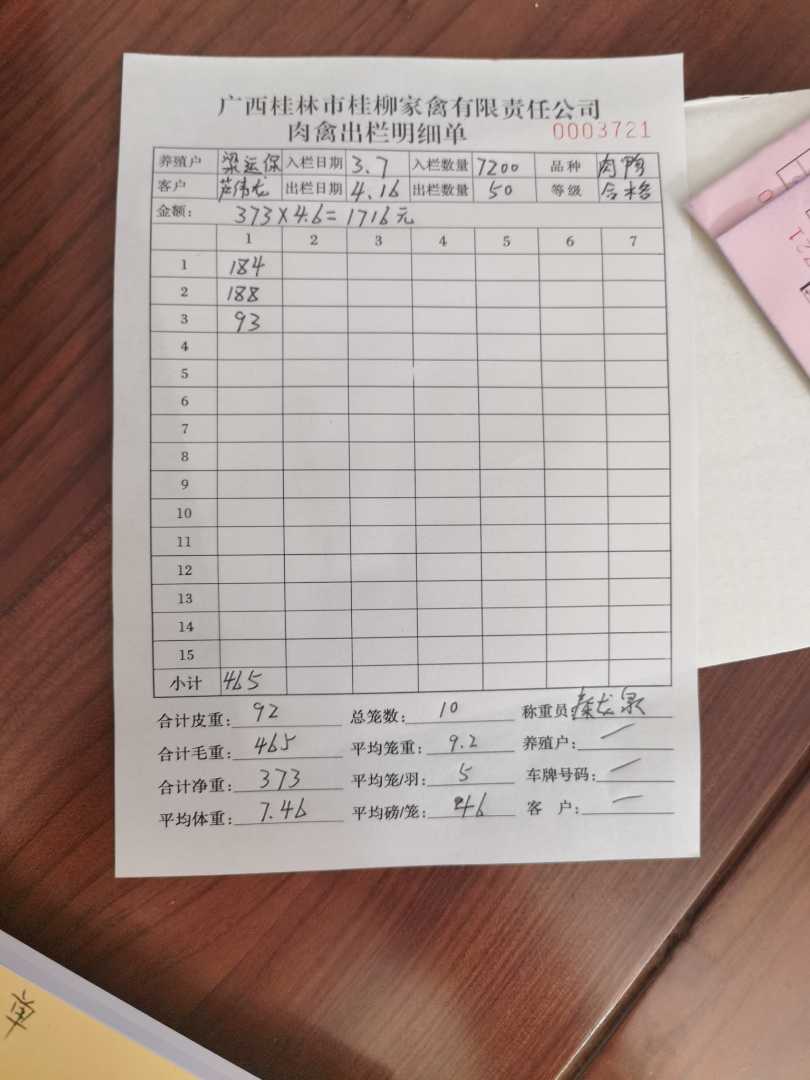 广西桂林市桂柳家禽有限责任公司
肉禽出栏明细单 0003721
养殖户 梁运保 入栏日期 3.7 入栏数量 7200 品种 肉鸭
客户 芦伟龙 出栏日期 4.16 出栏数量 50 等级 合格
金额: 373×4.6=1716元
1 2 3 4 5 6 7
1 184
2 188
3 93
4
5
6
7
8
9
10
11
12
13
14
15
小计 465
合计皮重: 92 总笼数: 10 称重员: 秦龙泉
合计毛重: 465 平均笼重: 9.2 养殖户: 一
合计净重: 373 平均笼/羽: 5 车牌号码: 一
平均体重: 7.46 平均磅/笼: 46 客 户: 一
单